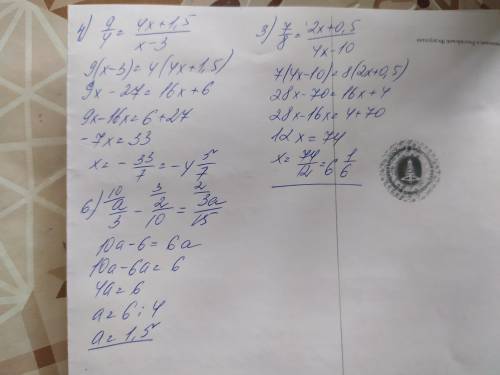 4) 9/4 = 4x+1,5/x-3
9(x-3)=4(4x+1,5)
9x-27=16x+6
9x-16x=6+27
-7x=33
x= - 33/7 = -4 5/7
6) 10 a/3 - 3 2/10 = 2 3a/15
10a-6=6a
10a-6a=6
4a=6
a=6:4
a=1,5
3) 7/8 = 2x+0,5/4x-10
7(4x-10)=8(2x+0,5)
28x-70=16x+4
28x-16x=4+70
12x=74
x= 74/12 = 6 1/6